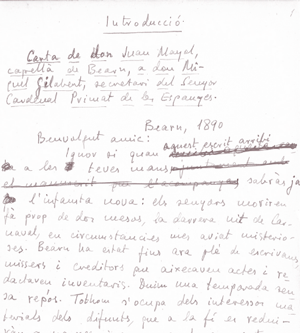 Introducció.
Carta de don Juan Mayol,
capellà de Bearn, a don Mi-
quel Gilabert, secretari del Senyor
Cardenal Primat de les Espanyes.
Bearn, 1890
Benvolgut amic: aquest escrit arribi
Ignor si quan
a a les teves mans
el manuscrit que l'acompanya sabràs ja
l'infausta nova: els senyors moriren
fa prop de dos mesos, la darrera nit de Car-
naval, en circumstàncies més aviat misterio-
ses. Bearn ha estat fins ara plé de escrivans,
missers i creditors que aixecaven actes i re-
dactaven inventaris. Duim una temporada sen-
sa repos. Tothom s'ocupa dels interessos ma-
terials dels difunts, que a la fé es reduei-